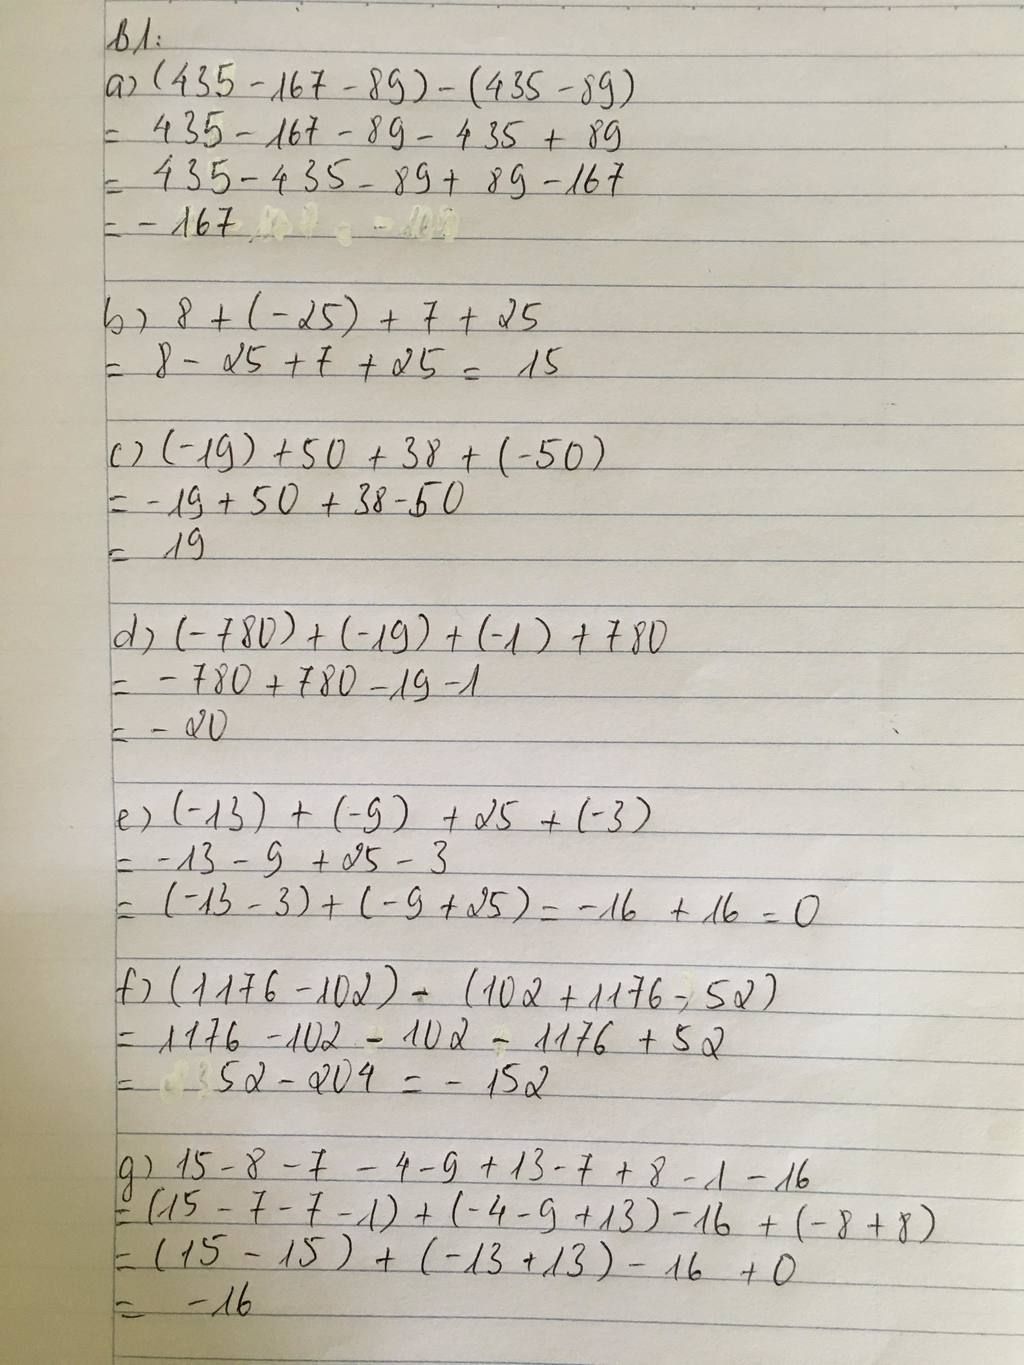 B1:
a) (435 - 167 - 89) - (435 - 89)
= 435 - 167 - 89 - 435 + 89
= 435 - 435 - 89 + 89 - 167
= - 167
b) 8 + (-25) + 7 + 25
= 8 - 25 + 7 + 25 = 15
c) (-19) + 50 + 38 + (-50)
= -19 + 50 + 38 - 50
= 19
d) (-780) + (-19) + (-1) + 780
= - 780 + 780 - 19 - 1
= - 20
e) (-13) + (-9) + 25 + (-3)
= -13 - 9 + 25 - 3
= (-13 - 3) + (-9 + 25) = -16 + 16 = 0
f) (1176 - 102) - (102 + 1176 - 52)
= 1176 - 102 - 102 - 1176 + 52
= 52 - 204 = - 152
g) 15 - 8 - 7 - 4 - 9 + 13 - 7 + 8 - 1 - 16
= (15 - 7 - 7 - 1) + (-4 - 9 + 13) - 16 + (-8 + 8)
= (15 - 15) + (-13 + 13) - 16 + 0
= -16